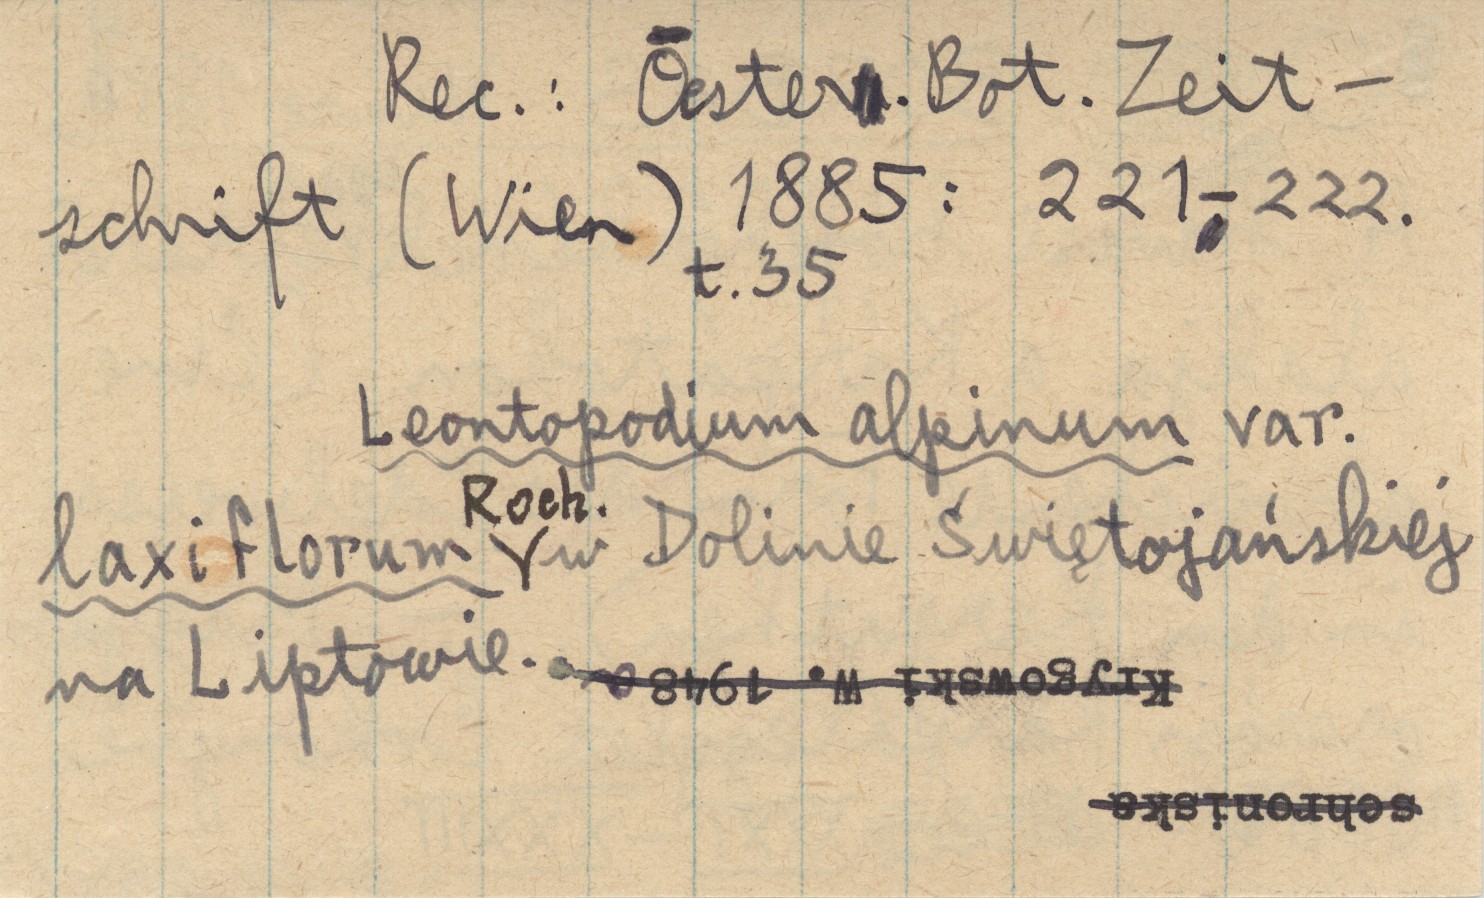 Rec.: Oester. Bot. Zeit-
schrift (Wien) 1885: 221-222.
t.35
Leontopodium alpinum var.
laxiflorum Roch. w Dolinie Świętojańskiej
na Liptowie.
Krygowski W. 1948
schroniska